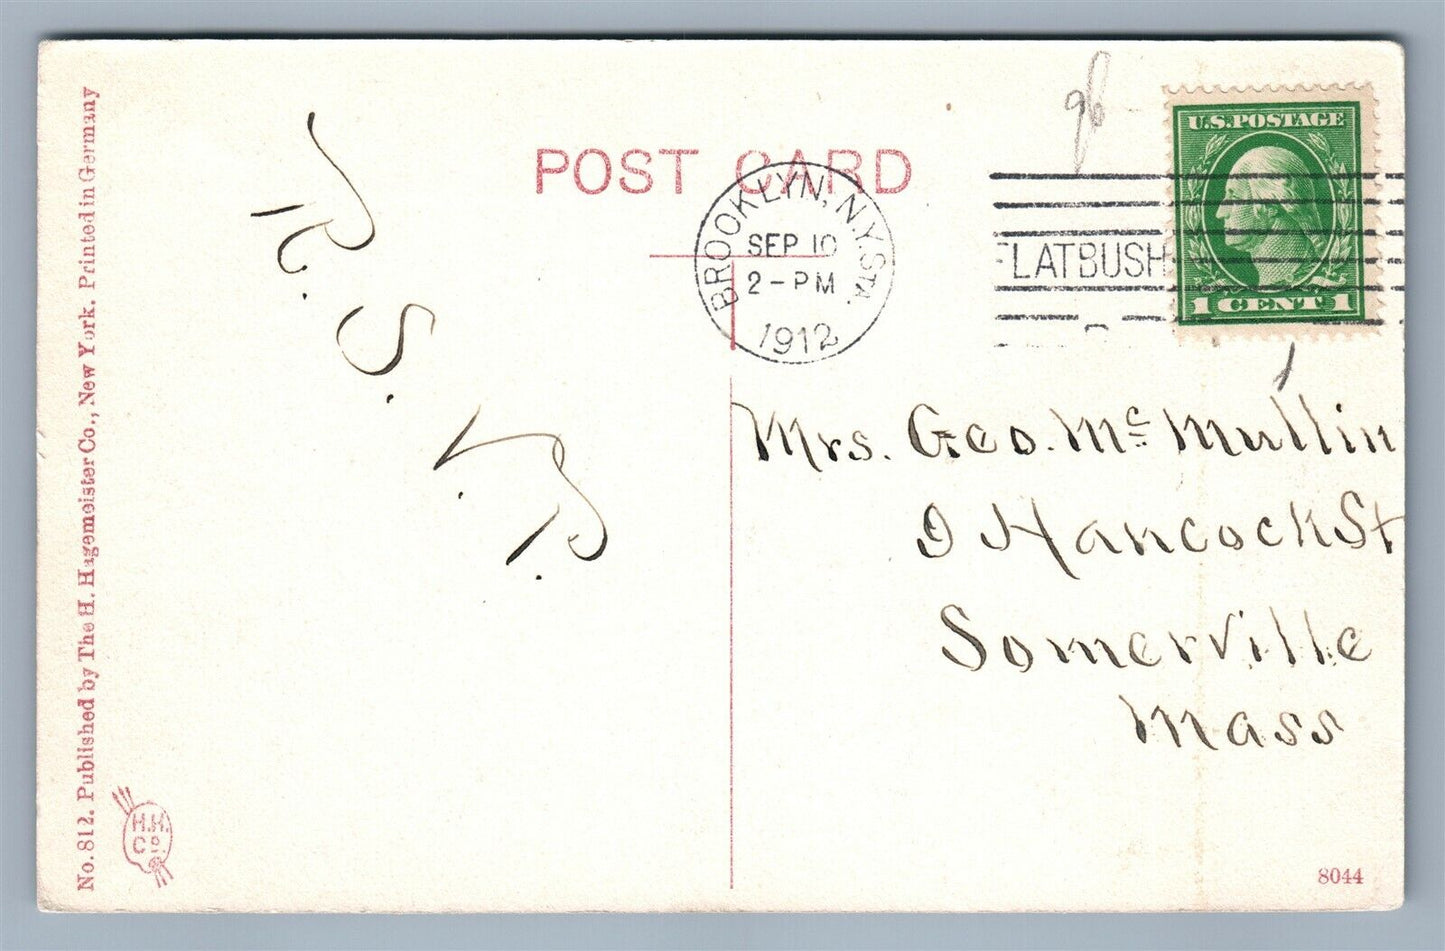 POST CARD
BROOKLYN, N.Y. STA.
SEP 10
2-PM
1912
FLATBUSH
U.S. POSTAGE
1 CENT 1
R. S. V. P.
Mrs. Geo. Mc Mullin
9 Hancock St
Somerville
Mass
No. 812. Published by The H. Hagemeister Co., New York. Printed in Germany
H.H. Co.
8044